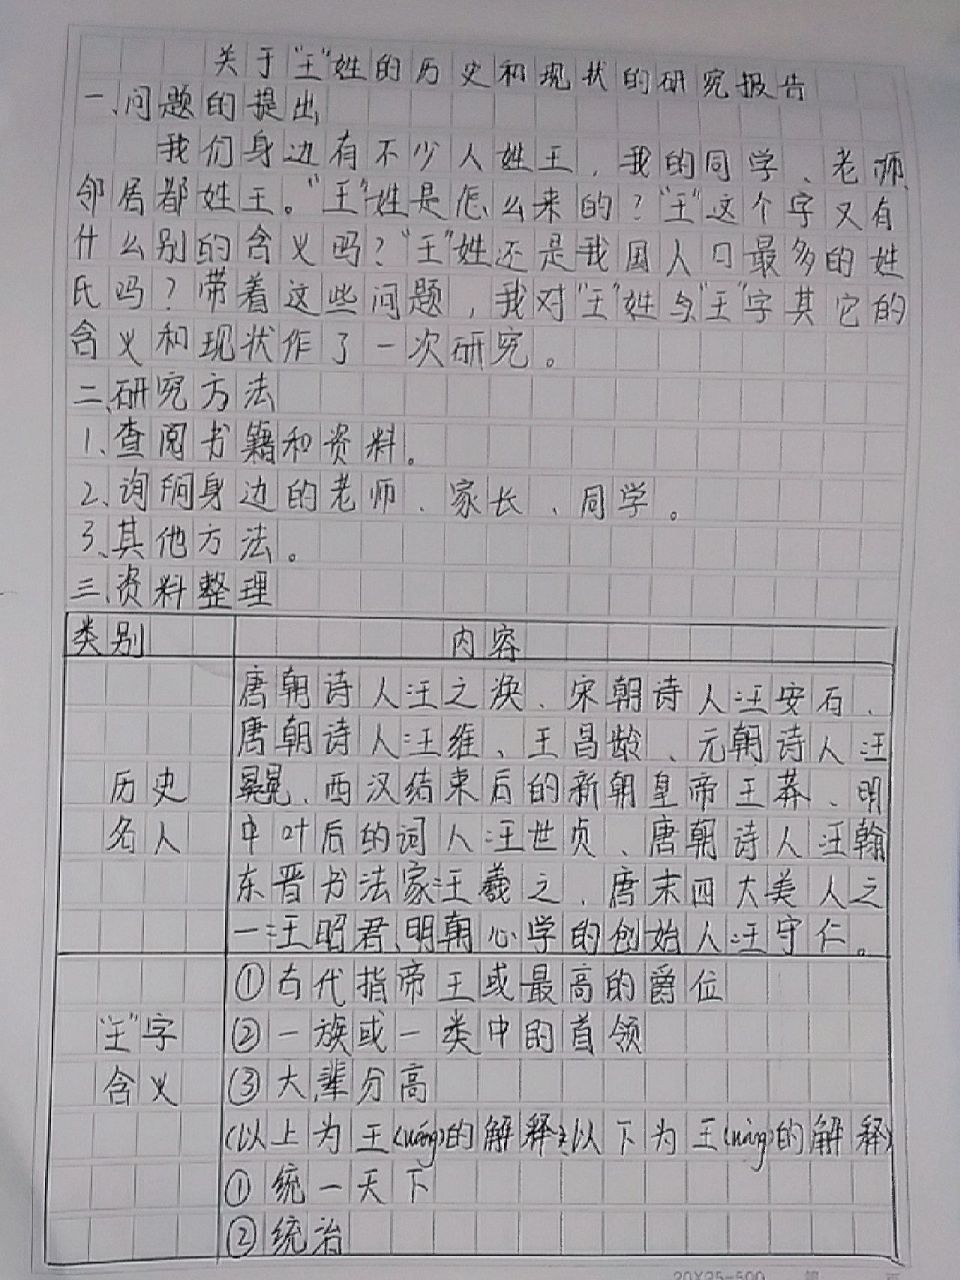 关于"王"姓的历史和现状的研究报告
一、问题的提出
我们身边有不少人姓王，我的同学、老师、
邻居都姓王。"王"姓是怎么来的？"王"这个字又有
什么别的含义吗？"王"姓还是我国人口最多的姓
氏吗？带着这些问题，我对"王"姓与"王"字其它的
含义和现状作了一次研究。
二、研究方法
1、查阅书籍和资料。
2、询问身边的老师、家长、同学。
3、其他方法。
三、资料整理
类别 内容
唐朝诗人:王之涣、宋朝诗人:王安石、
唐朝诗人:王维、王昌龄、元朝诗人:王
冕、西汉结束后的新朝皇帝王莽、明
历史
中叶后的词人:王世贞、唐朝诗人:王翰
名人
东晋书法家:王羲之、唐末四大美人之
一:王昭君、明朝心学的创始人:王守仁。
①古代指帝王或最高的爵位
"王"字
②一族或一类中的首领
含义
③大,辈分高
(以上为王(wáng)的解释)(以下为王(wàng)的解释)
①统一天下
②统治
20X25=500